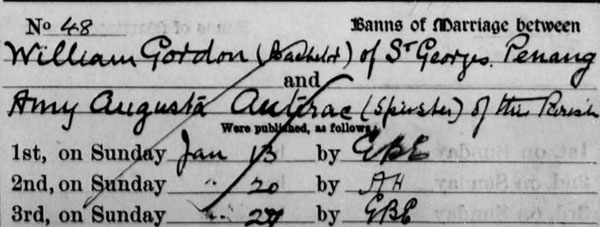 No 48 Banns of Marriage between
William Gordon (Bachelor) of St Georges. Penang
and
Amy Augusta (Spinster) of this Parish
Were published, as follows:
1st, on Sunday Jan 13 by GBE
2nd, on Sunday " 20 by AH
3rd, on Sunday " 27 by GBE